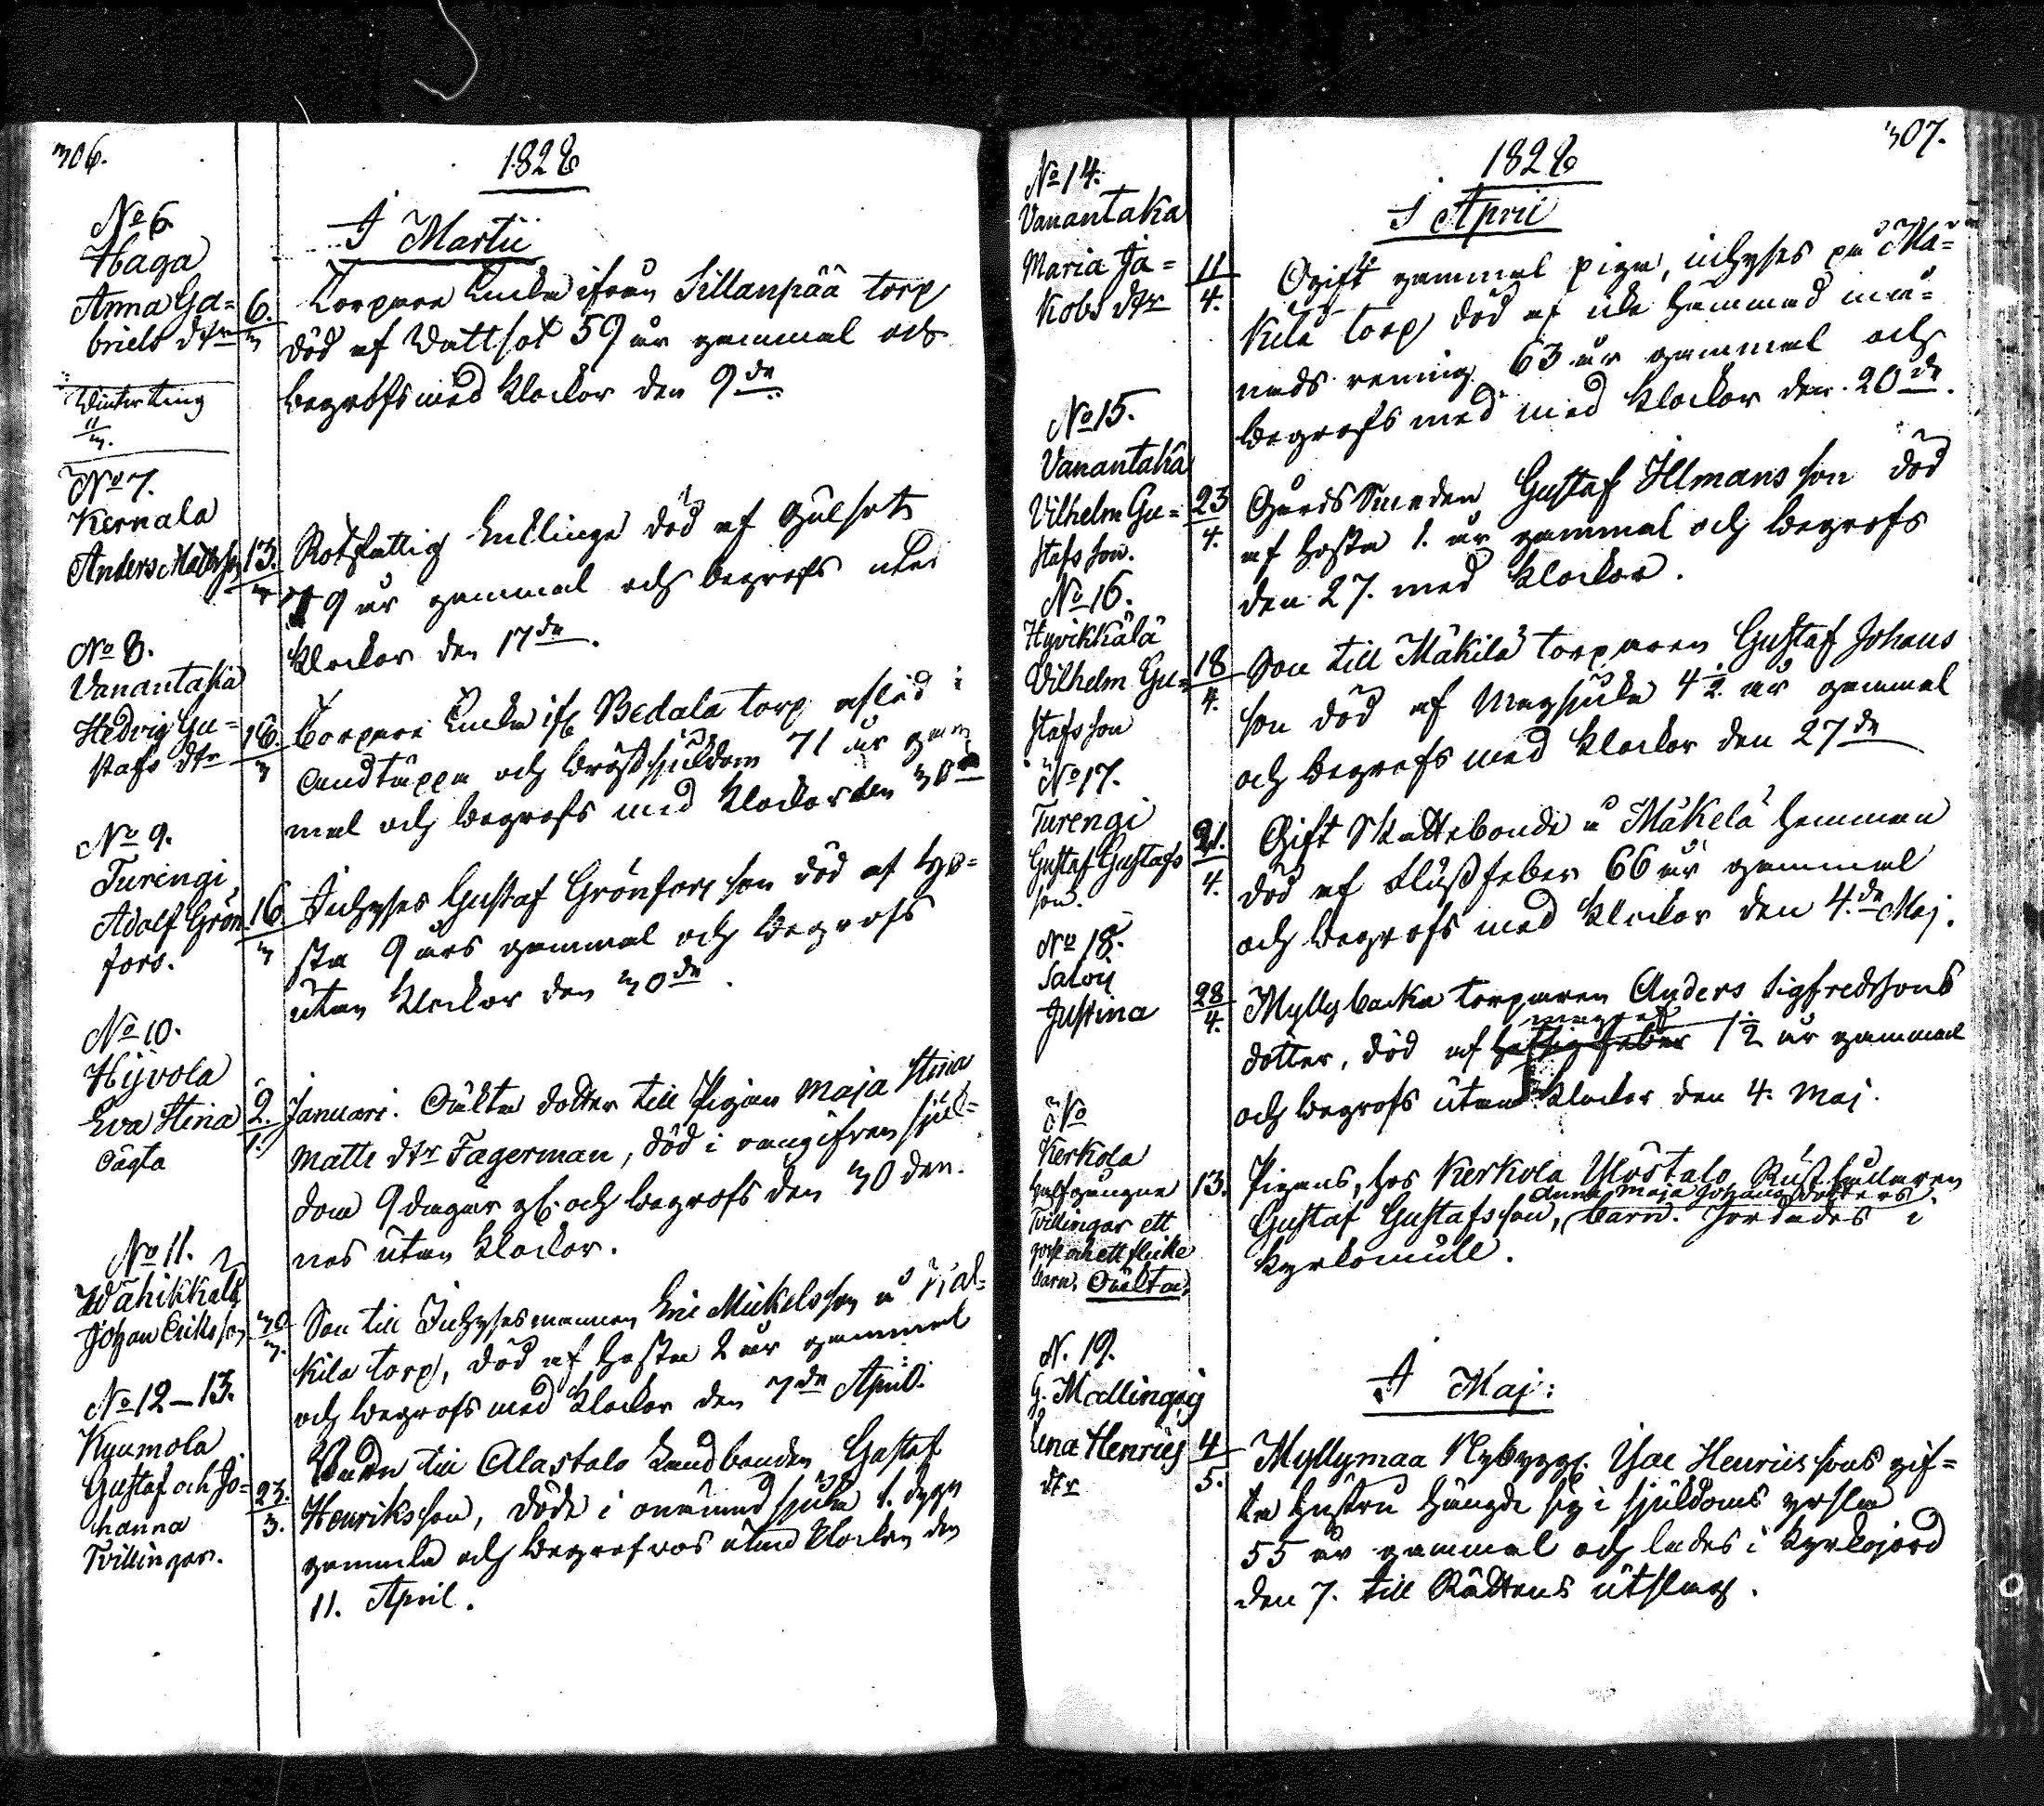 306.
1828
I Martii
No 6.
Haga
Anna Ga=
briels dtr
6.
3
Torpare Enka ifrån Sillanpää torp
död af Wattsot 59 år gammal och
begrofs med klockor den 9de
Winterting
11
3.
No 7.
Kernala
Anders Matts son
13.
3
Rotfattig Enklinge död af Gulsot
79 år gammal och begrofs utan
klockor den 17de.
No 8.
Vanantaka
Hedvig Gu=
stafs dtr
16.
3
Torpare Enka if. Bedala torp afled i
andtäppa och bröstsjukdom 71 år gam
mal och begrofs med klockor den 30de
No 9.
Turengi
Adolf Grön
fors.
16
3
Inhyses Gustaf Grönfors son död af
sta 9 års gammal och begrofs
utan klockor den 30de.
No 10.
Hyvola
Eva Stina
Oägta
2.
1.
Januari. Oäkta dotter till Pigan Maja Stina
Matts dtr Fagerman, död i oangifven sjuk=
dom 9 dagar gl. och begrofs den 30 den.
nes utan klockor.
No 11.
Wähikkälä
Johan Eriksson
30
3.
Son till Inhysesmannen Eric Mickelsson å
kila torp, död af Hosta 2 år gammal
och begrofs med klockor den 7de April.
No 12–13.
Kyumola
Gustaf och Jo=
hanna
Tvillingar.
23.
3.
Barn till Alastalo Landbonden Gustaf
Henriksson, döde i onämnd sjuka 1. dygn
gamla och begrofvos utan klockor den
11. April.
307.
1828
I April
No 14.
Vanantaka
Maria Ja=
kobs dtr
11
4.
Ogift gammal piga, inhyses på Mä=
kilä torp död af icke hämmad må=
nads rening 63 år gammal och
begrofs med med klockor den 20de.
No 15.
Vanantaka
Vilhelm Gu=
stafs son.
23
4.
Gårds Smeden Gustaf Illmans son död
af Hosta 1. år gammal och begrofs
den 27. med klockor.
No 16.
Hyvikkälä
Vilhelm Gu=
stafs son
18
4.
Son till Mäkilä torparen Gustaf Johans
son död af Magsjuka 4½ år gammal
och begrofs med klockor den 27de
No 17.
Turengi
Gustaf Gustafs
son.
21.
4.
Gift Skattebonde å Mäkelä hemman
död af Flussfeber 66 år gammal
och begrofs med klockor den 4.de Maj.
No 18.
Saloi
Justina
28
4.
Myllybacka torparen Anders Sigfredssons
dotter, död af hettig feber 1½ år gammal
och begrofs utan klockor den 4. Maj.
No
Kerkola
Halfgångne
Tvillingar ett
goss och ett flicke
barn. Oäkta.
13.
Pigans, hos Kerkola Ulostalo Rusthållaren
Anna Maja Johans dotters
Gustaf Gustafsson, barn. Jordades i
kyrkomull.
I Maj:
N. 19.
G. Mallinge
Lena Henrics
dtr
4
5.
Myllymaa Nybygg. Isac Henrics sons gif=
ta hustru hängde sig i sjukdoms yrsla
55 år gammal och lades i kyrkojord
den 7. till Rättens utslag.